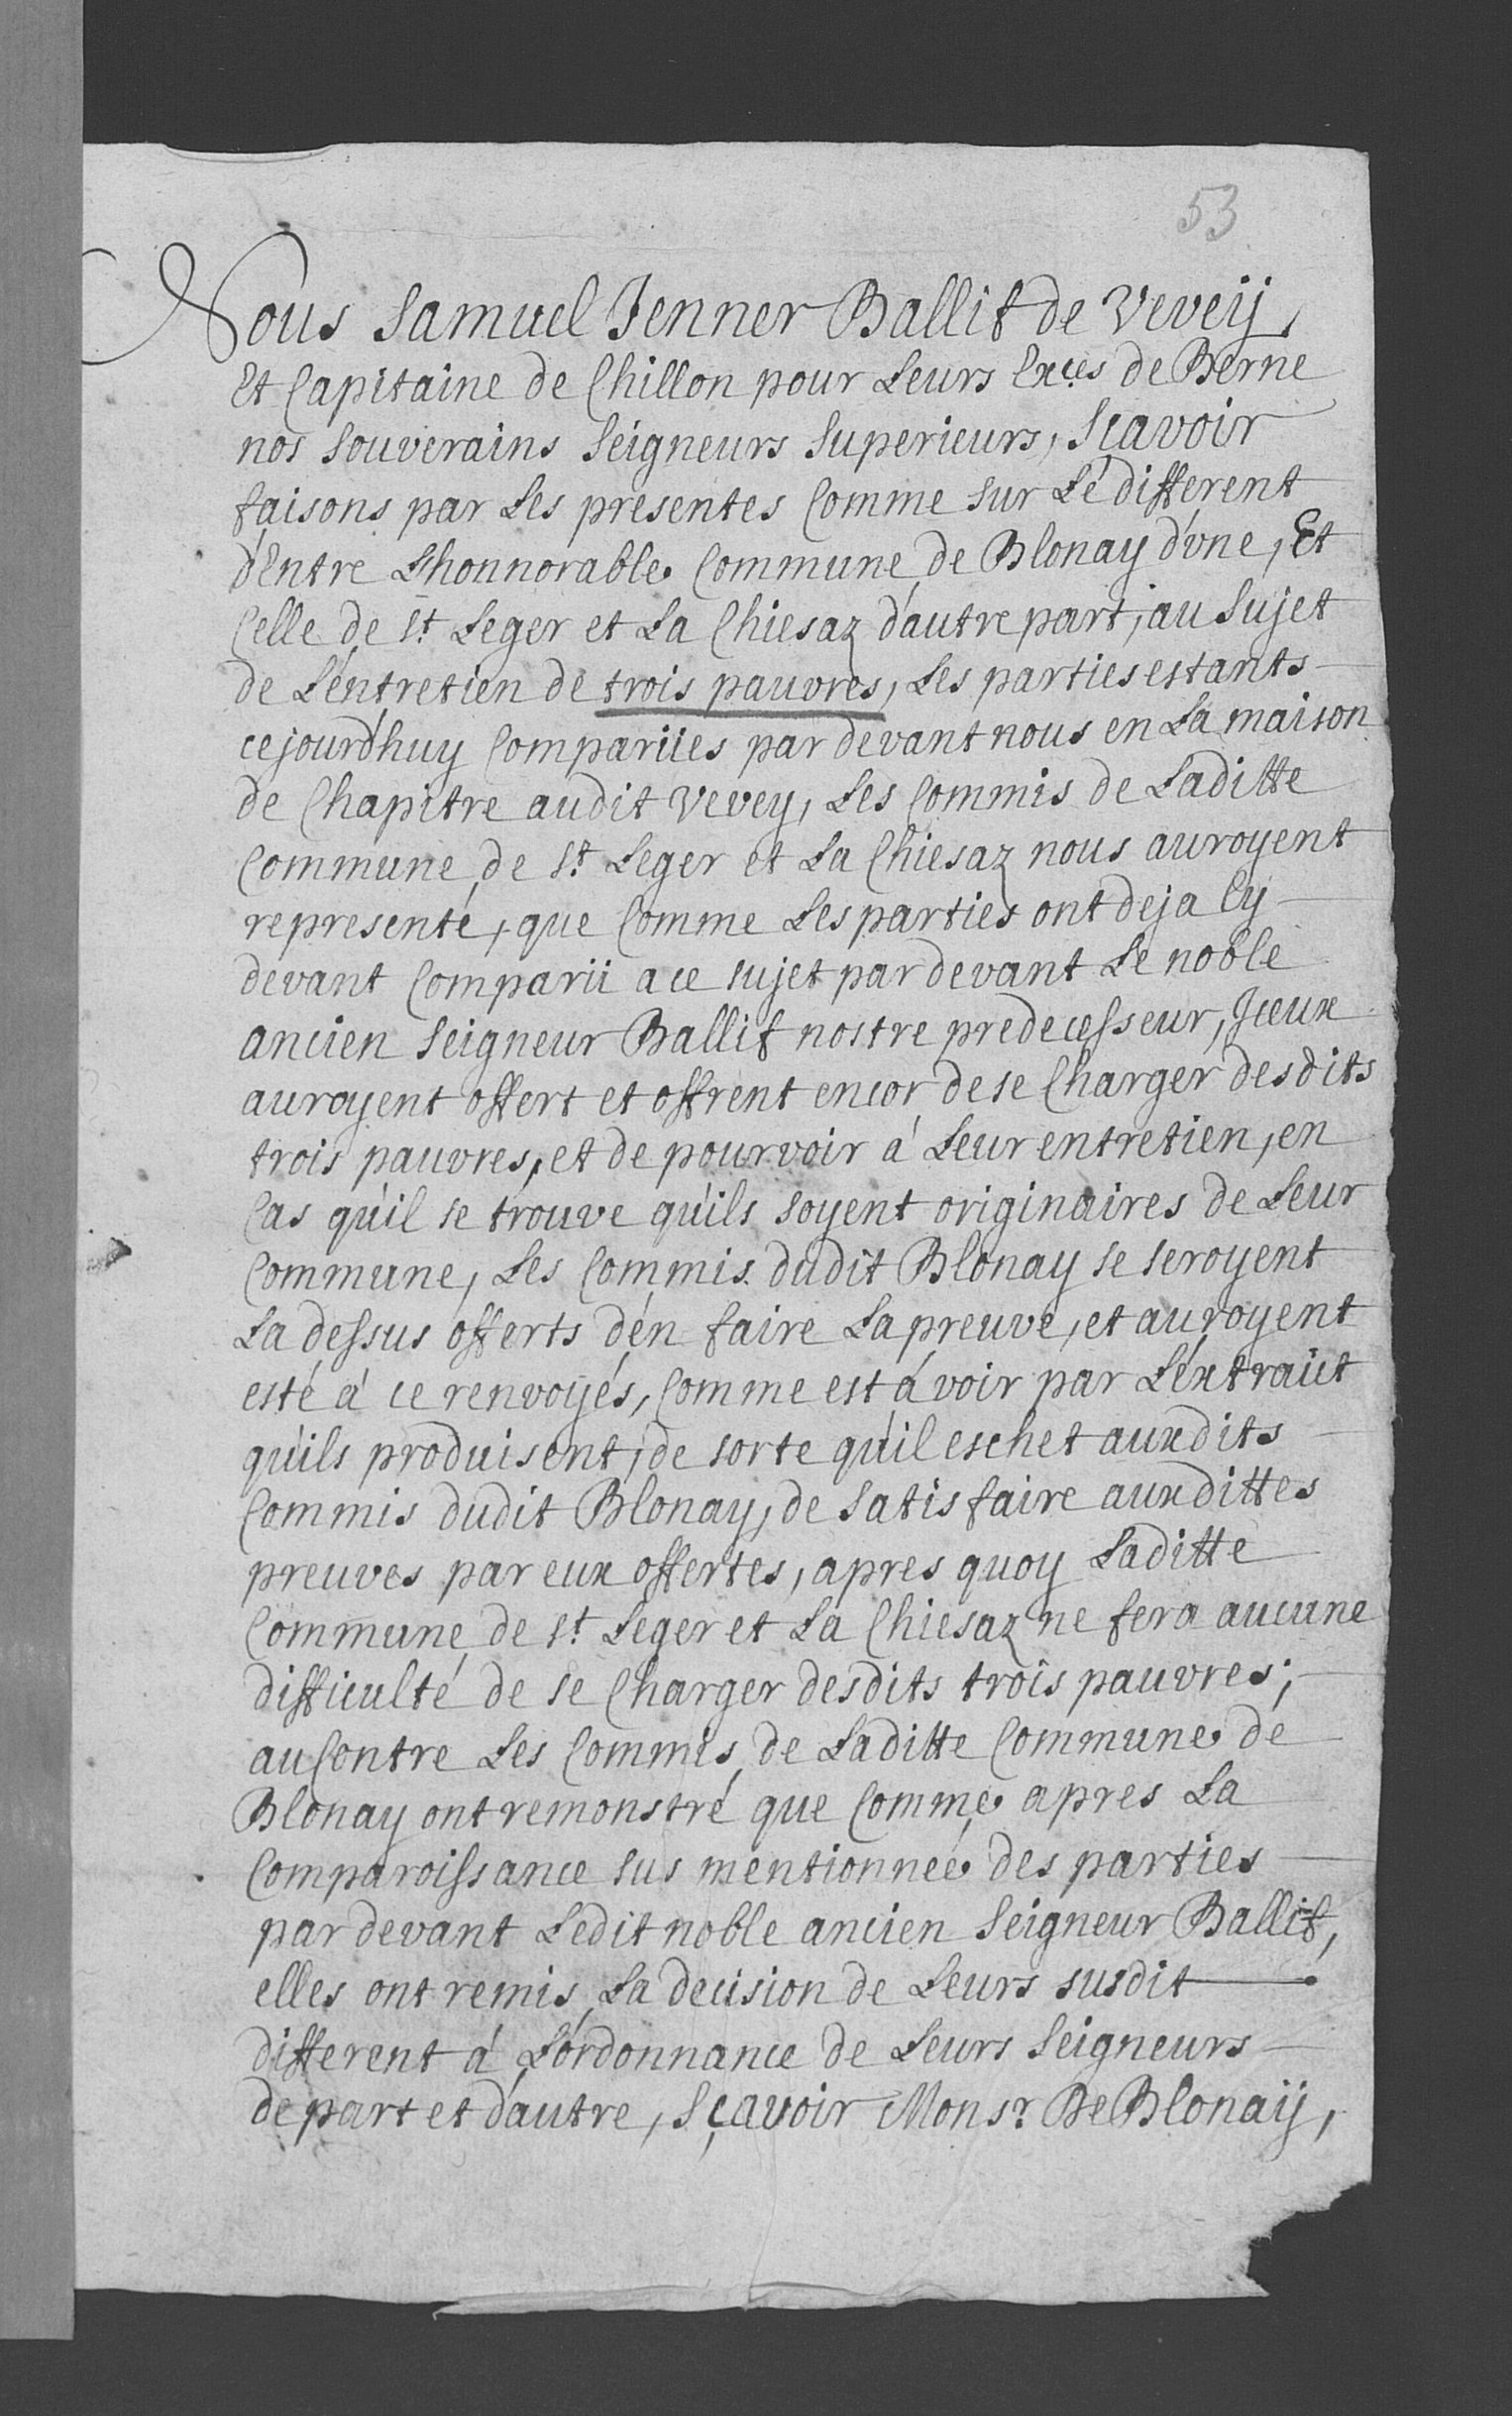 53
Nous Samuel Jenner Ballif de Vevey,
Et Capitaine de Chillon pour Leurs Exces de Berne
nos souverains Seigneurs Superieurs, Scavoir
faisons par Les presentes Comme sur Le different
d'Entre L'honnorable Commune de Blonay d'une, Et
Celle de St. Leger et La Chiesaz d'autre part, au Sujet
de L'entretien de trois pauvres, Les parties estants
cejourd'huy Comparües par devant nous en La maison
de Chapitre audit Vevey, Les Commis de Laditte
Commune de St. Leger et La Chiesaz nous auroyent
representé, que Comme Les parties ont deja Cy
devant Comparü a ce sujet par devant Le noble
ancien Seigneur Ballif nostre predecesseur, Iceux
auroyent offert et offrent encor de se Charger desdits
trois pauvres, et de pourvoir à Leur entretien, en
Cas qu'il se trouve qu'ils soyent originaires de Leur
Commune, Les Commis dudit Blonay se seroyent
La dessus offerts d'en faire La preuve, et auroyent
esté à ce renvoyés, Comme est à voir par L'extrait
qu'ils produisent, de sorte qu'il eschet auxdits
Commis dudit Blonay, de Satisfaire auxdittes
preuves par eux offertes, apres quoy Laditte
Commune de St. Leger et La Chiesaz ne fera aucune
difficulté de se Charger desdits trois pauvres;
au Contre Les Commis de Laditte Commune de
Blonay ont remonstré que Comme apres La
Comparoissance sus mentionnée des parties
par devant Ledit noble ancien Seigneur Ballif,
elles ont remis La decision de Leurs susdit
different à L'ordonnance de Leurs Seigneurs
de part et d'autre, Sçavoir Monsr. De Blonaÿ,